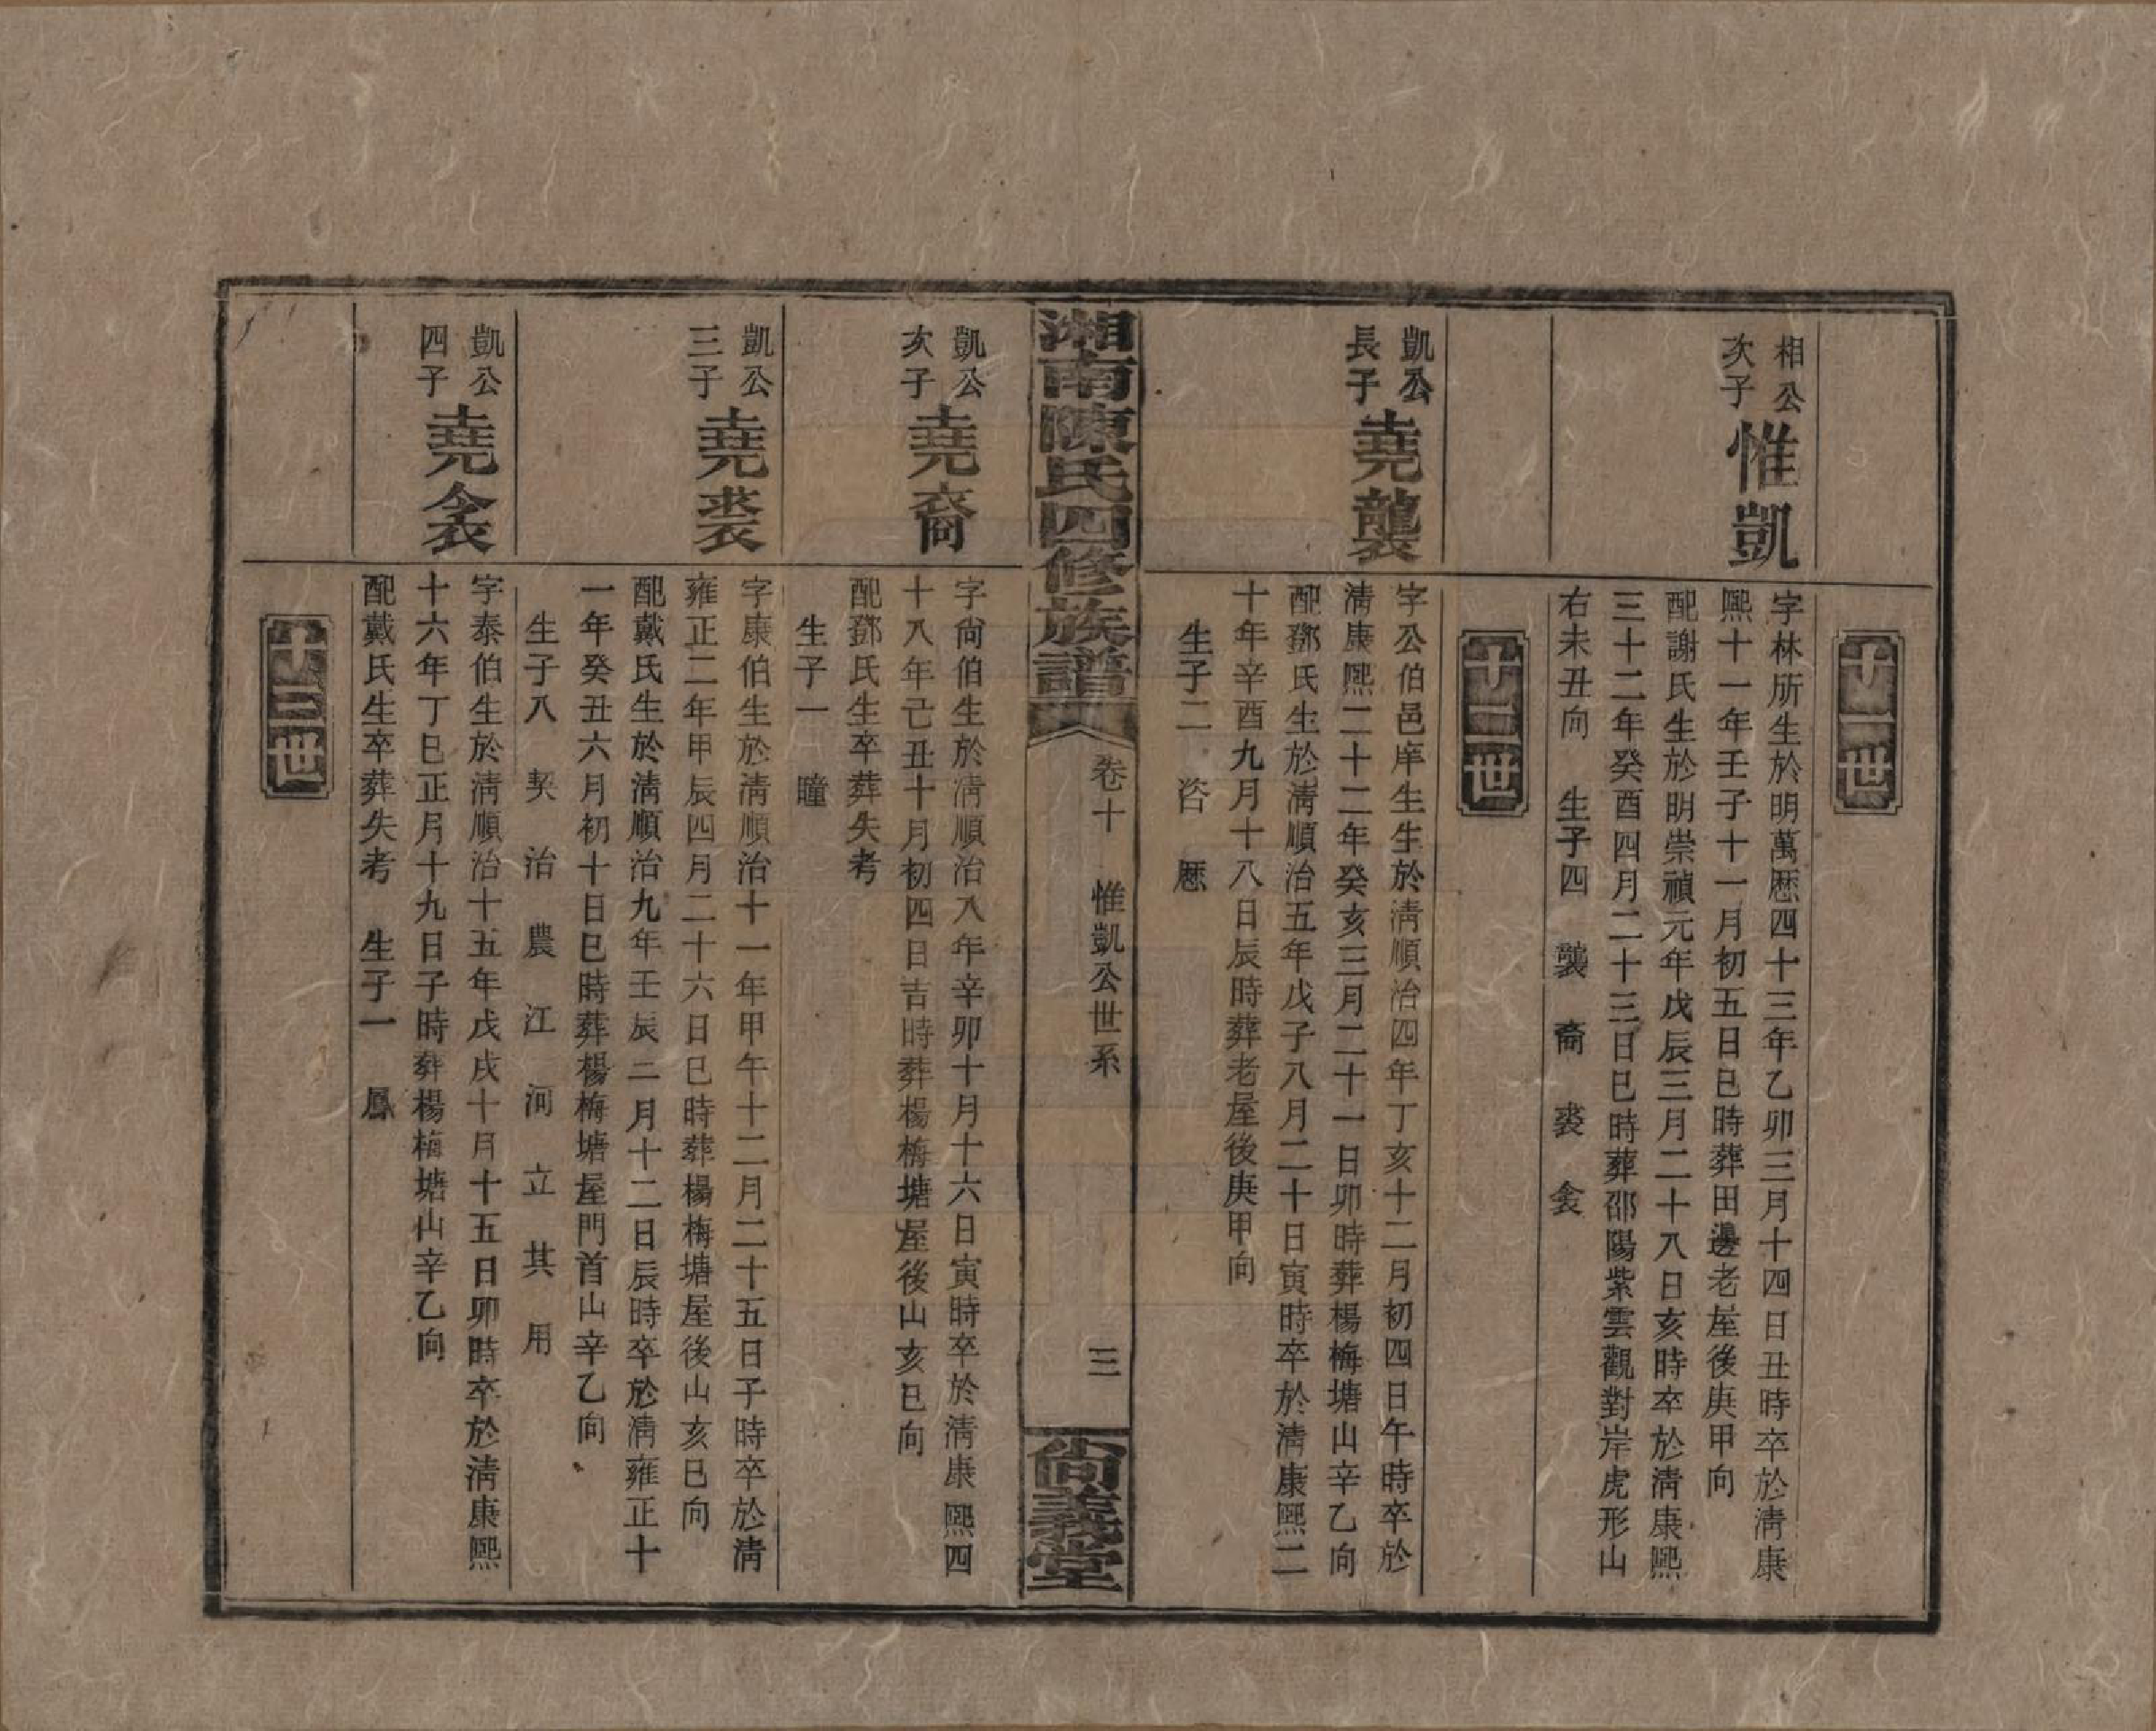 十一世
相公
次子
惟凱
字林所生於明萬厯四十三年乙卯三月十四日丑時卒於淸康
熙十一年壬子十一月初五日巳時葬田邊老屋後庚甲向
配謝氏生於明崇禎元年戊辰三月二十八日亥時卒於淸康熙
三十二年癸酉四月二十三日巳時葬邵陽紫雲觀對岸虎形山
右未丑向　生子四　襲　裔　裘　衾
十二世
凱公
長子
堯襲
字公伯邑庠生生於淸順治四年丁亥十二月初四日午時卒於
淸康熙二十二年癸亥三月二十一日卯時葬楊梅塘山辛乙向
配鄧氏生於淸順治五年戊子八月二十日寅時卒於淸康熙二
十年辛酉九月十八日辰時葬老屋後庚甲向
生子二　咨　厯
湘南陳氏四修族譜
卷十　惟凱公世系
三
尚義堂
凱公
次子
堯裔
字尙伯生於淸順治八年辛卯十月十六日寅時卒於淸康熙四
十八年己丑十月初四日吉時葬楊梅塘屋後山亥巳向
配鄧氏生卒葬失考
生子一　瞳
凱公
三子
堯裘
字康伯生於淸順治十一年甲午十二月二十五日子時卒於淸
雍正二年甲辰四月二十六日巳時葬楊梅塘屋後山亥巳向
配戴氏生於淸順治九年壬辰二月十二日辰時卒於淸雍正十
一年癸丑六月初十日巳時葬楊梅塘屋門首山辛乙向
生子八　契　治　農　江　河　立　其　用
凱公
四子
堯衾
字泰伯生於淸順治十五年戊戌十月十五日卯時卒於淸康熙
十六年丁巳正月十九日子時葬楊梅塘山辛乙向
配戴氏生卒葬失考　生子一　鳳
十三世